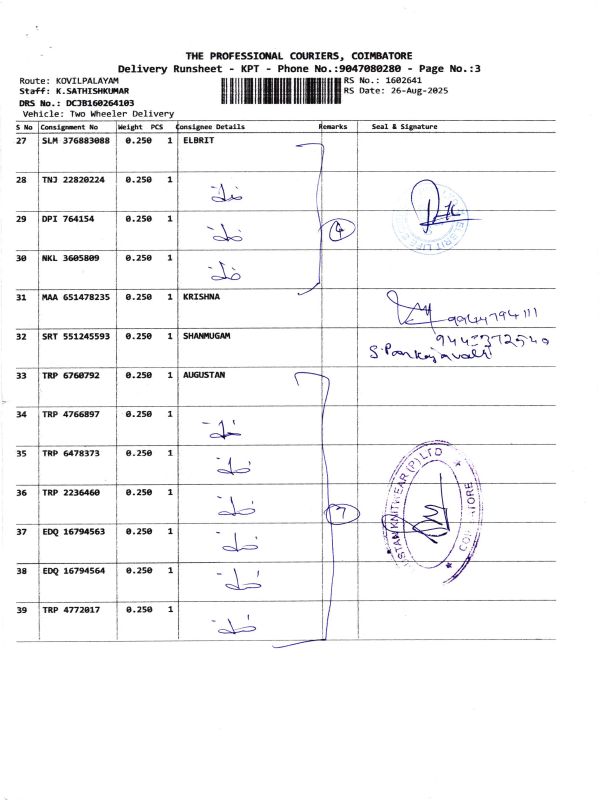 THE PROFESSIONAL COURIERS, COIMBATORE
Delivery Runsheet - KPT - Phone No.:9047080280 - Page No.:3
Route: KOVILPALAYAM RS No.: 1602641
Staff: K.SATHISHKUMAR RS Date: 26-Aug-2025
DRS No.: DCJB160264103
Vehicle: Two Wheeler Delivery
S No Consignment No Weight PCS Consignee Details Remarks Seal & Signature
27 SLM 376883088 0.250 1 ELBRIT
28 TNJ 22820224 0.250 1
29 DPI 764154 0.250 1 4
ELBRIT LIFE
30 NKL 3605809 0.250 1
31 MAA 651478235 0.250 1 KRISHNA
9944794111
32 SRT 551245593 0.250 1 SHANMUGAM
S. Pankajavalli
33 TRP 6760792 0.250 1 AUGUSTAN
34 TRP 4766897 0.250 1
35 TRP 6478373 0.250 1
36 TRP 2236460 0.250 1 7
KNITWEAR (P) LTD
37 EDQ 16794563 0.250 1
38 EDQ 16794564 0.250 1
39 TRP 4772017 0.250 1